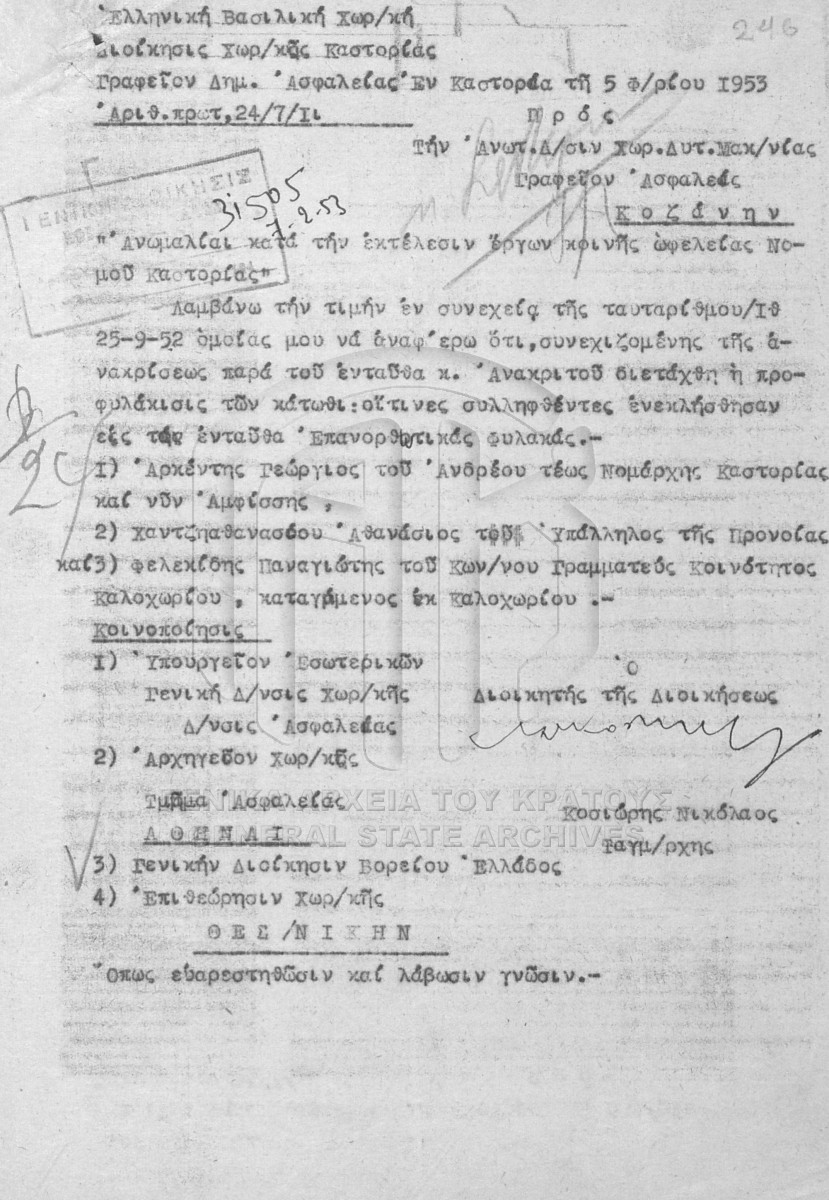 246
Ἑλληνική Βασιλική Χωρ/κή
Διοίκησις Χωρ/κῆς Καστορίας
Γραφεῖον Δημ. Ἀσφαλείας Ἐν Καστορία τῆ 5 Φ/ρίου 1953
Ἀριθ.πρωτ,24/7/Ιι
Πρός
Τήν Ἀνωτ.Δ/σιν Χωρ.Δυτ.Μακ/νίας
Γραφεῖον Ἀσφαλείας
Κοζάνην
ΓΕΝΙΚΗ ΔΙΟΙΚΗΣΙΣ
31505
7.2.53
"Ἀνωμαλίαι κατά τήν ἐκτέλεσιν ἔργων κοινῆς ὠφελείας Νο-
μοῦ Καστορίας"
Λαμβάνω τήν τιμήν ἐν συνεχείᾳ τῆς ταυταρίθμου/Ιθ
25-9-52 ὁμοίας μου νά ἀναφέρω ὅτι,συνεχιζομένης τῆς ἀ-
νακρίσεως παρά τοῦ ἐνταῦθα κ. Ἀνακριτοῦ διετάχθη ἡ προ-
φυλάκισις τῶν κάτωθι:οἵτινες συλληφθέντες ἐνεκλήσθησαν
εἰς τάς ἐνταῦθα Ἐπανορθωτικάς φυλακάς.-
Ι) Ἀρκέντης Γεώργιος τοῦ Ἀνδρέου τέως Νομάρχης Καστορίας
καί νῦν Ἀμφίσσης ,
2) Χαντζηαθανασίου Ἀθανάσιος τοῦ Ὑπάλληλος τῆς Προνοίας
καί3) Φελεκίδης Παναγιώτης τοῦ Κων/νου Γραμματεύς Κοινότητος
Καλοχωρίου , καταγόμενος ἐκ Καλοχωρίου .-
Κοινοποίησις
Ι) Ὑπουργεῖον Ἐσωτερικῶν
Γενική Δ/νσις Χωρ/κῆς
Δ/νσις Ἀσφαλείας
Ὁ
Διοικητής τῆς Διοικήσεως
2) Ἀρχηγεῖον Χωρ/κῆς
Τμῆμα Ἀσφαλείας
ΑΘΗΝΑΙ
Κοσιώρης Νικόλαος
Ταγμ/ρχης
3) Γενικήν Διοίκησιν Βορείου Ἑλλάδος
4) Ἐπιθεώρησιν Χωρ/κῆς
ΘΕΣ/ΝΙΚΗΝ
Ὅπως εὐαρεστηθῶσιν καί λάβωσιν γνῶσιν.-
ΓΕΝΙΚΑ ΑΡΧΕΙΑ ΤΟΥ ΚΡΑΤΟΥΣ
GENERAL STATE ARCHIVES